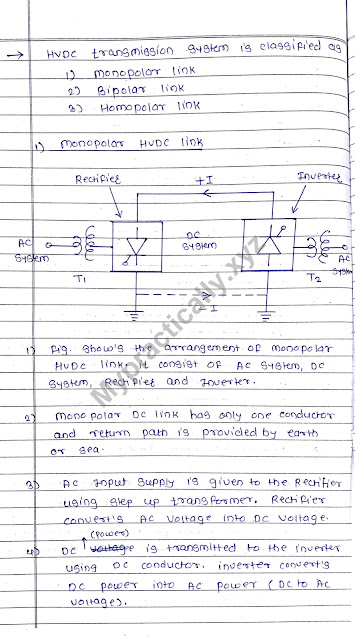 → HVDC transmission system is classified as
1) monopolar link
2) Bipolar link
3) Homopolar link
1) monopolar HVDC link
Rectifier
+I
Inverter
AC
system
DC
system
AC
system
T1
T2
- I
1) Fig. show's the arrangement of monopolar
HVDC link. it consist of AC system, DC
system, Rectifier and Inverter.
2) mono polar DC link has only one conductor
and return path is provided by earth
or sea.
3) AC Input supply is given to the Rectifier
using step up transformer. Rectifier
convert's AC voltage into DC voltage.
(power)
4) DC voltage is transmitted to the inverter
using DC conductor. inverter convert's
DC power into AC power (DC to AC
voltage).
Mypractically.xyz